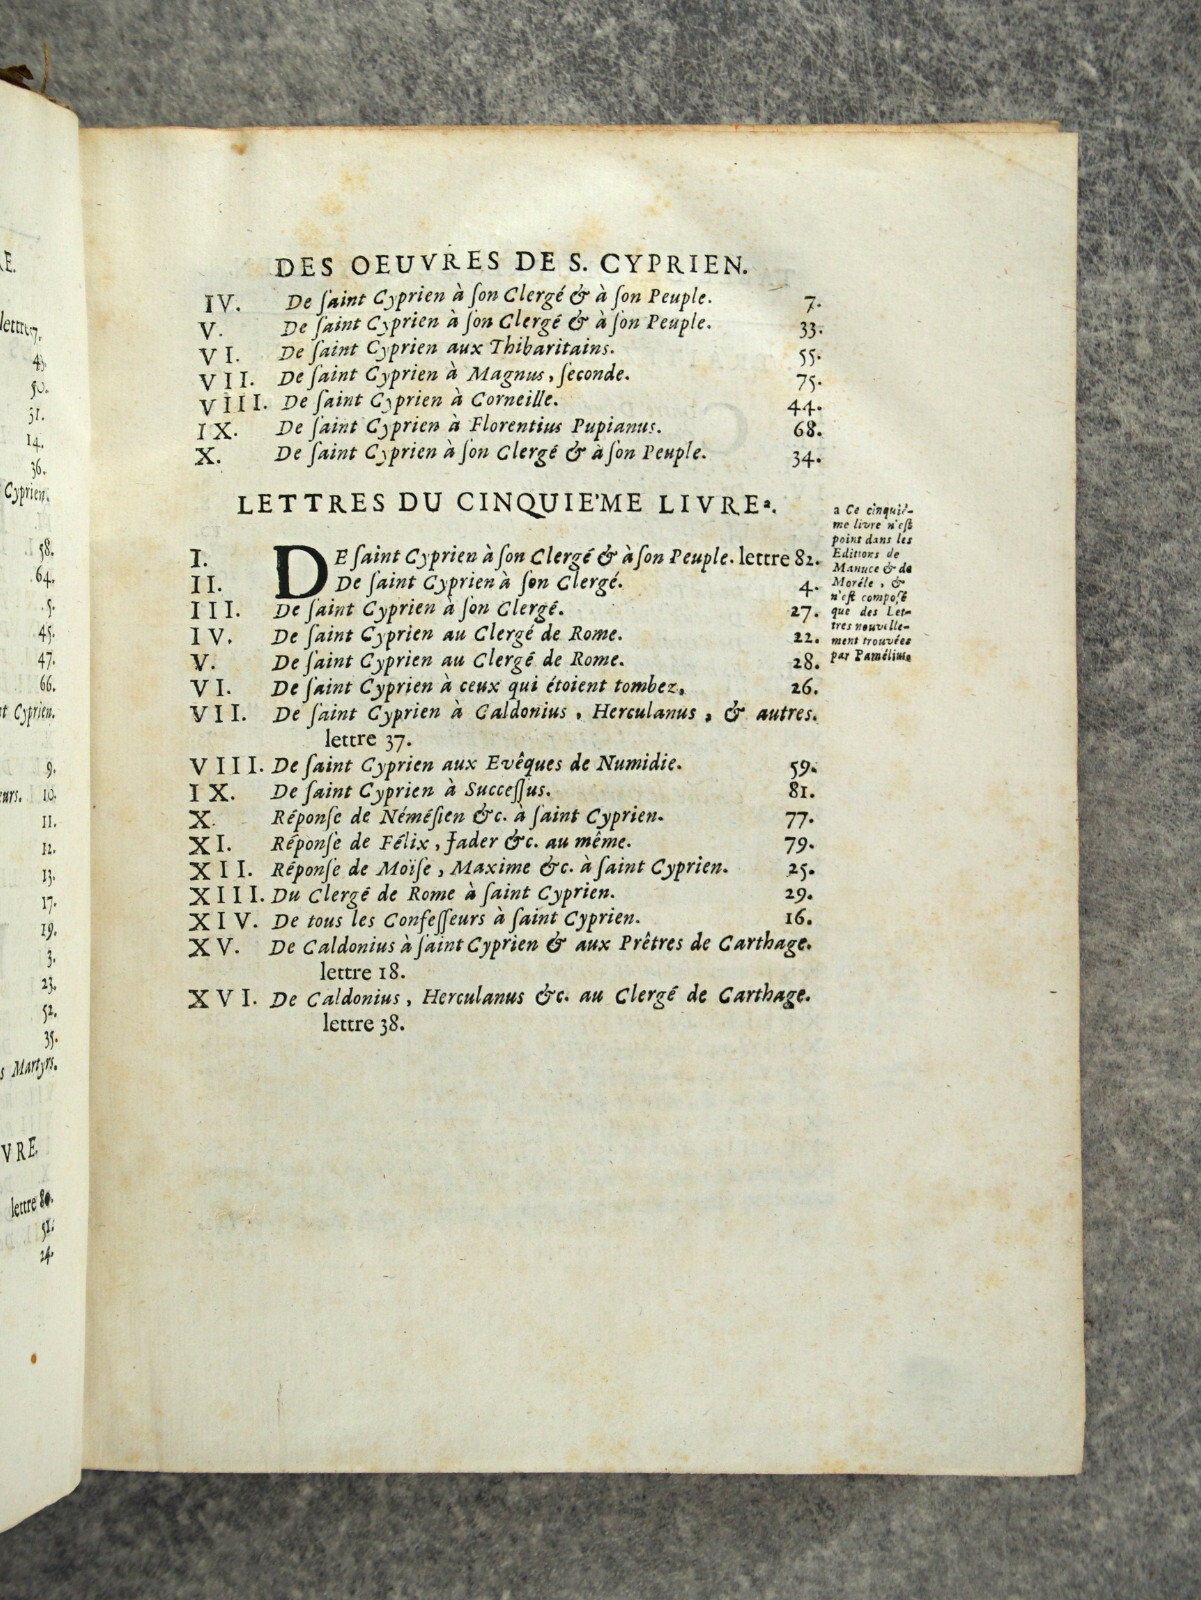 RE.
lettre 7.
43.
50.
31.
14.
36.
Cyprien.
58.
64.
5.
45.
47.
66.
t Cyprien.
9.
eurs. 10.
11.
12.
13.
17.
19.
3.
23.
52.
35.
s Martyrs.
VRE.
lettre 80.
51.
24.
DES OEUVRES DE S. CYPRIEN.
IV. De ſaint Cyprien à ſon Clergé & à ſon Peuple. 7.
V. De ſaint Cyprien à ſon Clergé & à ſon Peuple. 33.
VI. De ſaint Cyprien aux Thibaritains. 55.
VII. De ſaint Cyprien à Magnus, ſeconde. 75.
VIII. De ſaint Cyprien à Corneille. 44.
IX. De ſaint Cyprien à Florentius Pupianus. 68.
X. De ſaint Cyprien à ſon Clergé & à ſon Peuple. 34.
LETTRES DU CINQUIE'ME LIVRE a.
I. DE ſaint Cyprien à ſon Clergé & à ſon Peuple. lettre 82.
II. De ſaint Cyprien à ſon Clergé. 4.
III. De ſaint Cyprien à ſon Clergé. 27.
IV. De ſaint Cyprien au Clergé de Rome. 22.
V. De ſaint Cyprien au Clergé de Rome. 28.
VI. De ſaint Cyprien à ceux qui étoient tombez, 26.
VII. De ſaint Cyprien à Caldonius, Herculanus, & autres.
lettre 37.
VIII. De ſaint Cyprien aux Evêques de Numidie. 59.
IX. De ſaint Cyprien à Succeſſus. 81.
X. Réponſe de Néméſien &c. à ſaint Cyprien. 77.
XI. Réponſe de Félix, Jader &c. au même. 79.
XII. Réponſe de Moïſe, Maxime &c. à ſaint Cyprien. 25.
XIII. Du Clergé de Rome à ſaint Cyprien. 29.
XIV. De tous les Confeſſeurs à ſaint Cyprien. 16.
XV. De Caldonius à ſaint Cyprien & aux Prêtres de Carthage.
lettre 18.
XVI. De Caldonius, Herculanus &c. au Clergé de Carthage.
lettre 38.
a Ce cinquié-
me livre n'eſt
point dans les
Editions de
Manuce & de
Moréle, &
n'eſt compoſé
que des Let-
tres nouvelle-
ment trouvées
par Pamélius